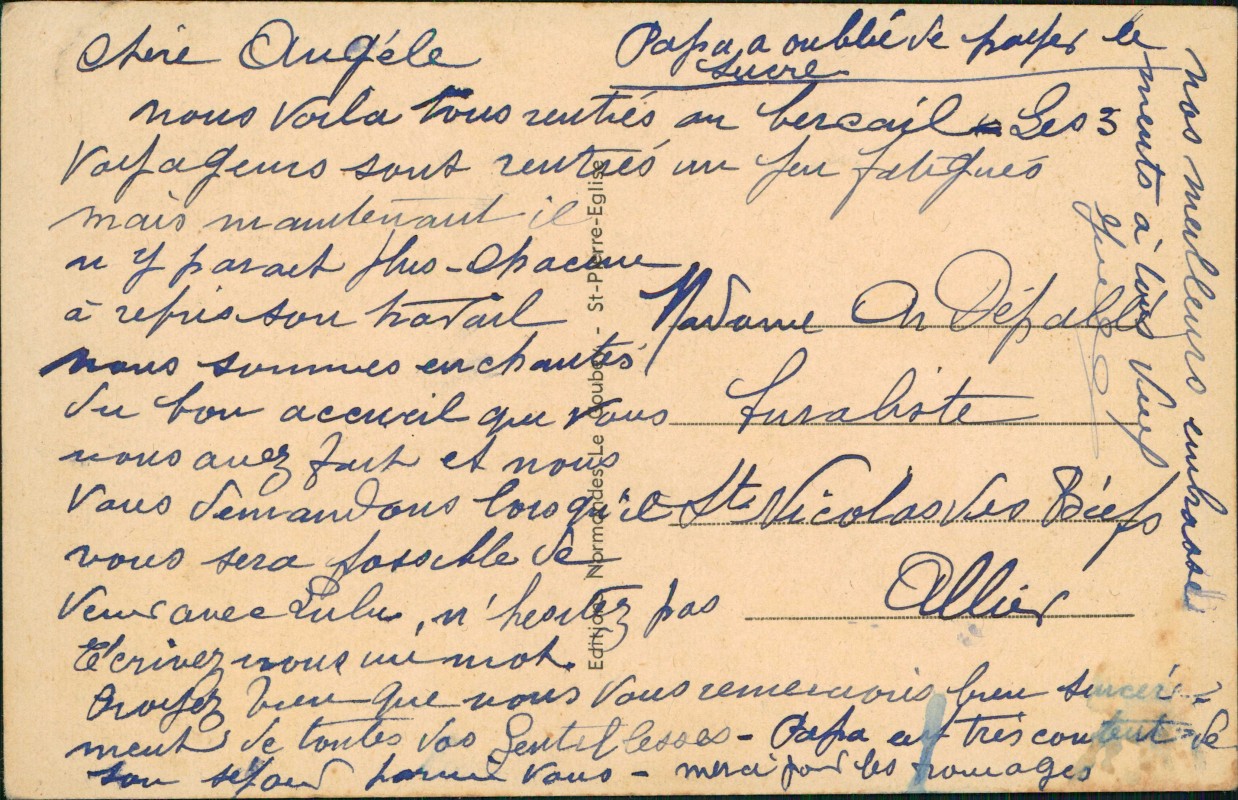 Chère Angéle
nous voila tous rentrés au bercail - Les 3
voyageurs sont rentrés un peu fatigués
mais maintenant il
n'y parait plus - chacune
à repris son travail
nous sommes enchantés
du bon accueil que vous
nous avez fait et nous
vous demandons lorsqu'il
vous sera possible de
venir avec Lulu, n'hesitez pas
Ecrivez nous un mot.
Croyez bien que nous vous remercions bien sincére-
ment de toutes vos Gentillesses - Papa est très content de
son sejour parmi vous - merci pour les fromages
Papa a oublié de payer le
sucre
Madame
Buraliste
St Nicolas des Biefs
Allier
nos meilleurs embrasse
ments à tous deux
Editions Normandes Le Goubey - St-Pierre-Eglise